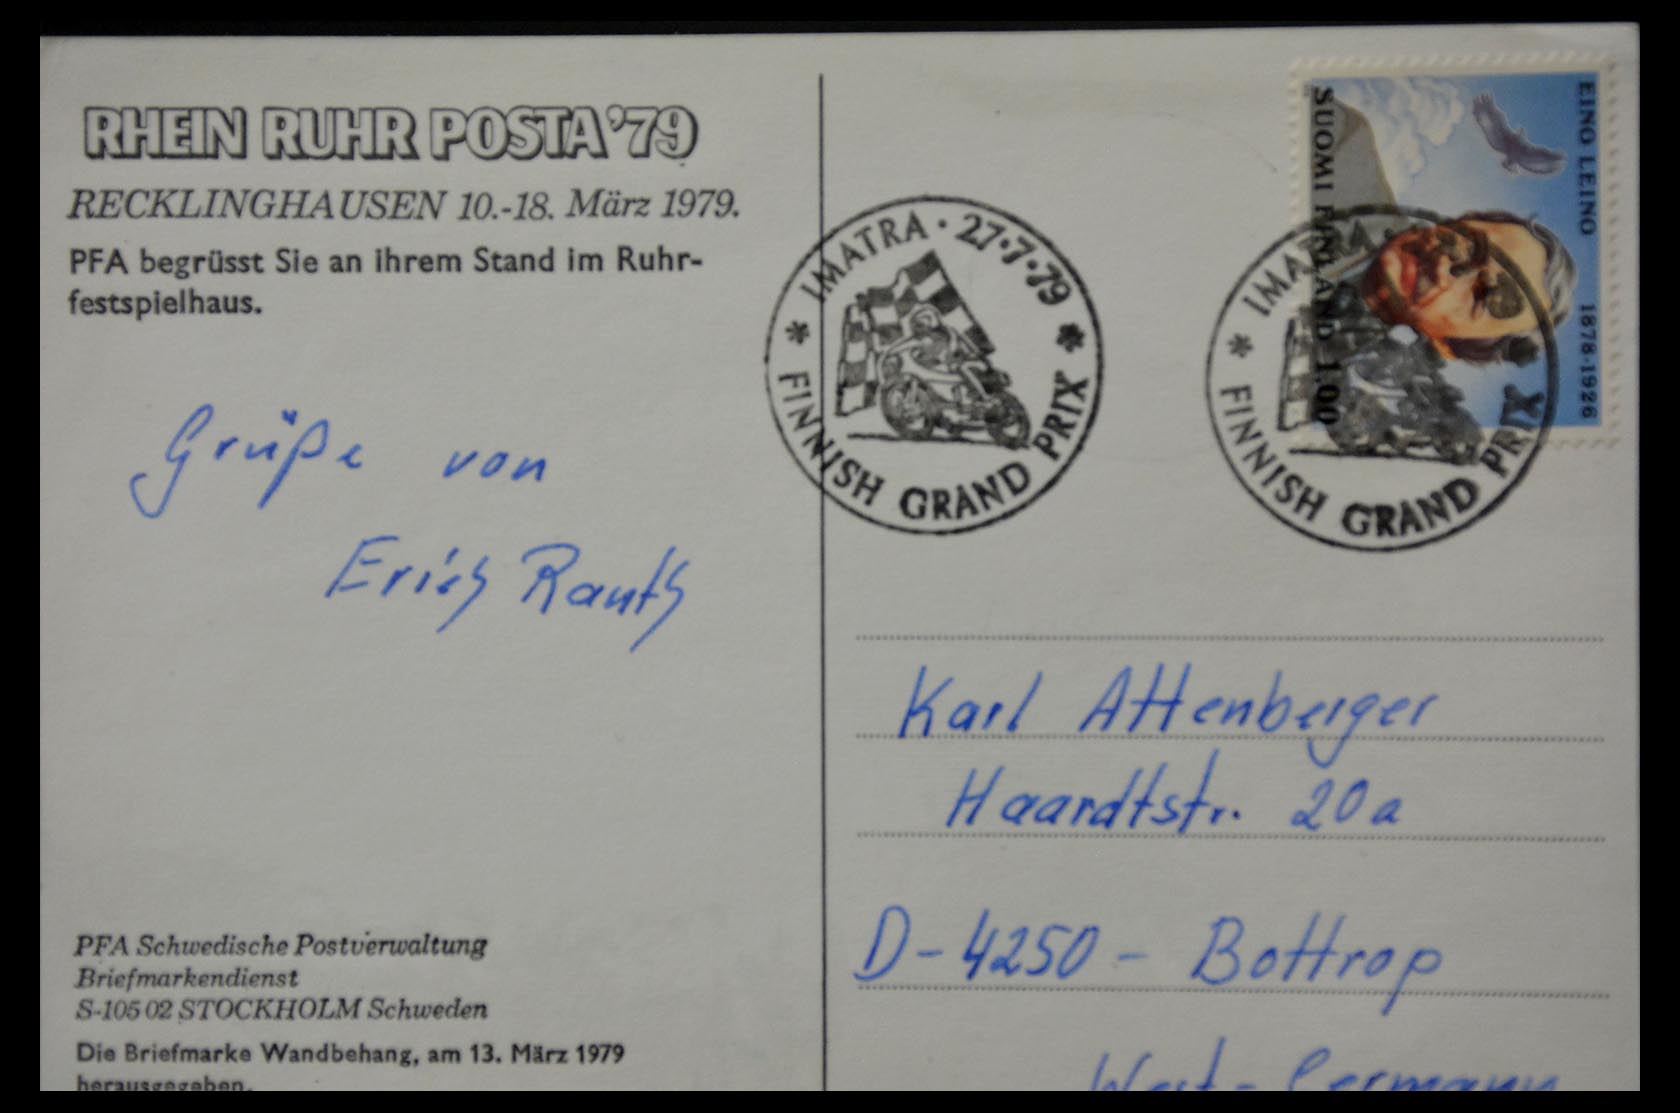 RHEIN RUHR POSTA '79
RECKLINGHAUSEN 10.-18. März 1979.
PFA begrüsst Sie an ihrem Stand im Ruhr-
festspielhaus.
Grüße von
Erich Rauth
PFA Schwedische Postverwaltung
Briefmarkendienst
S-105 02 STOCKHOLM Schweden
Die Briefmarke Wandbehang, am 13. März 1979
herausgegeben.
IMATRA · 27·7·79
* FINNISH GRAND PRIX *
EINO LEINO 1878-1926
SUOMI FINLAND 1,00
IMATRA
* FINNISH GRAND PRIX
Karl Attenberger
Haardtstr. 20a
D-4250- Bottrop
West-Germany